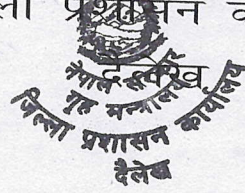 ला प्रशासन क
दैलेख
नेपाल सरकार
गृह मन्त्रालय
जिल्ला प्रशासन कार्यालय
दैलेख